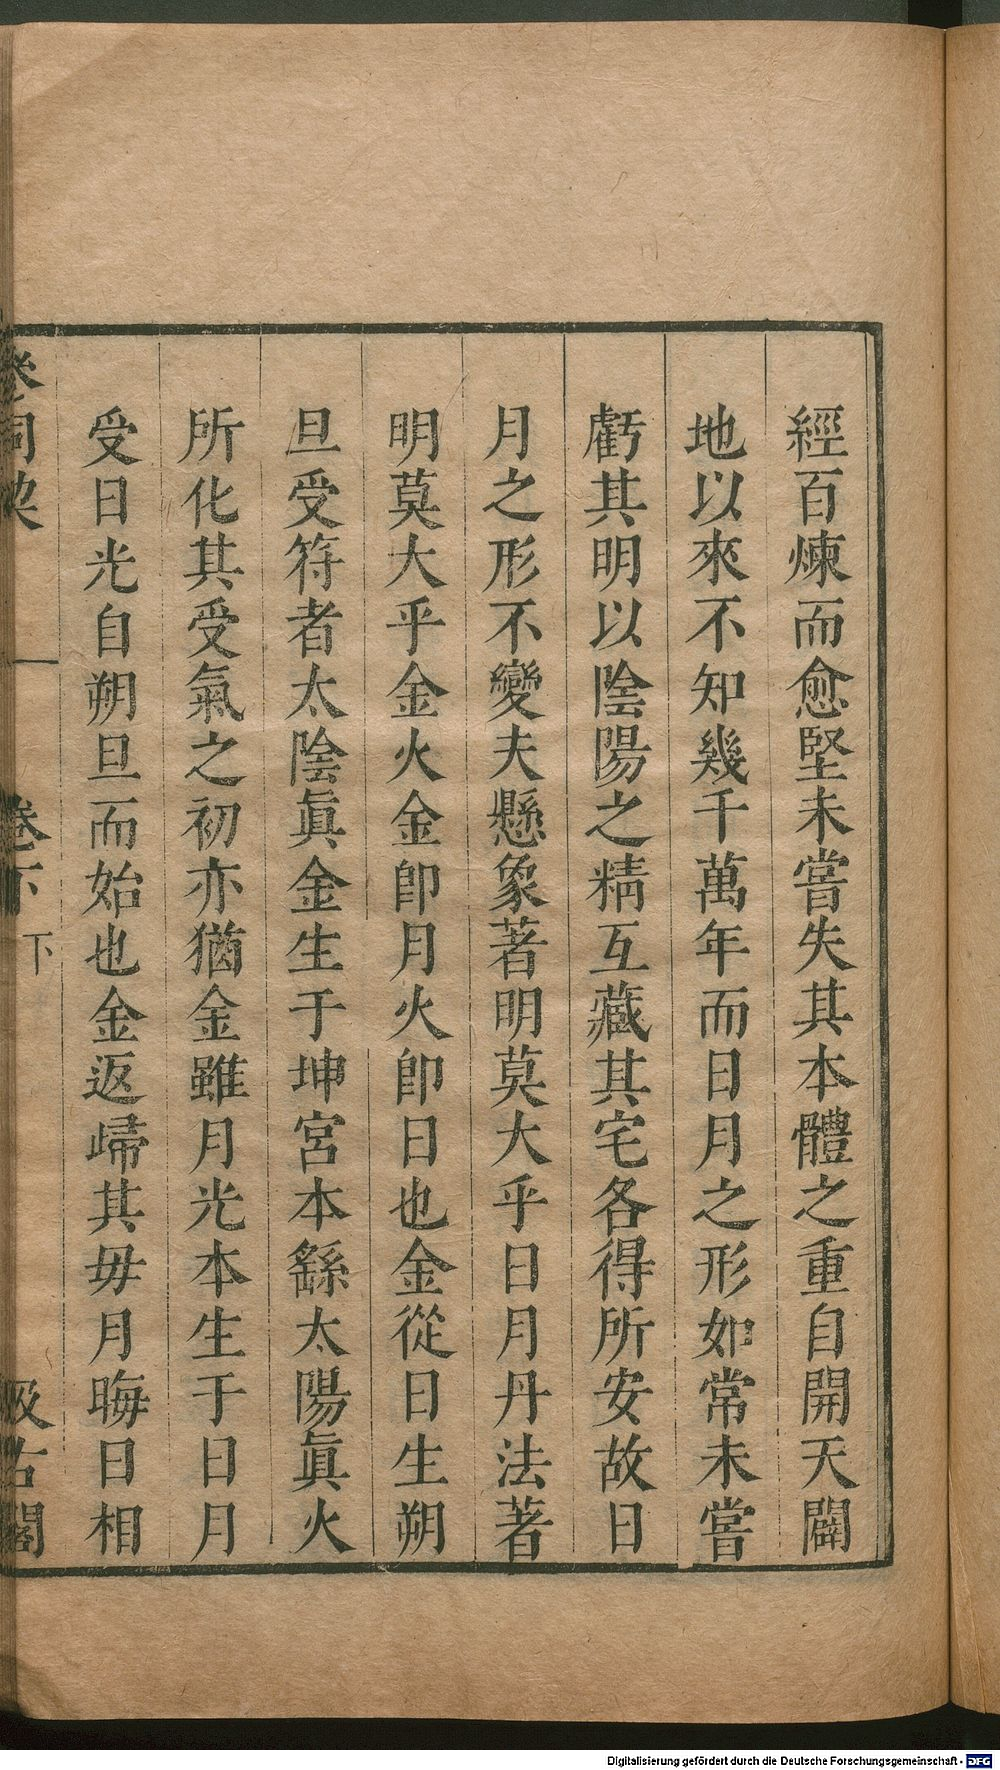 經百煉而愈堅未嘗失其本體之重自開天闢
地以來不知幾千萬年而日月之形如常未嘗
虧其明以陰陽之精互藏其宅各得所安故日
月之形不變夫懸象著明莫大乎日月丹法著
明莫大乎金火金卽月火卽日也金從日生朔
旦受符者太陰眞金生于坤宮本繇太陽眞火
所化其受氣之初亦猶金雖月光本生于日月
受日光自朔旦而始也金返歸其毋月晦日相
參同契 一 卷下 下 汲古閣
Digitalisierung gefördert durch die Deutsche Forschungsgemeinschaft - DFG